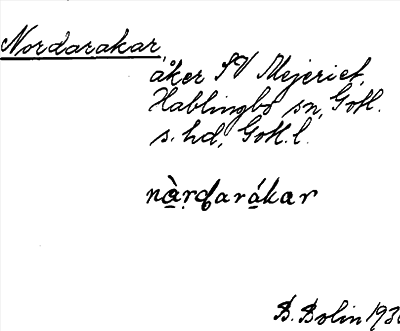 Nordarakar,
åker SV Mejeriet,
Hablingbo sn, Gotl.
s. hd, Gotl. l.
nàrdarákar
B. Bolin 193